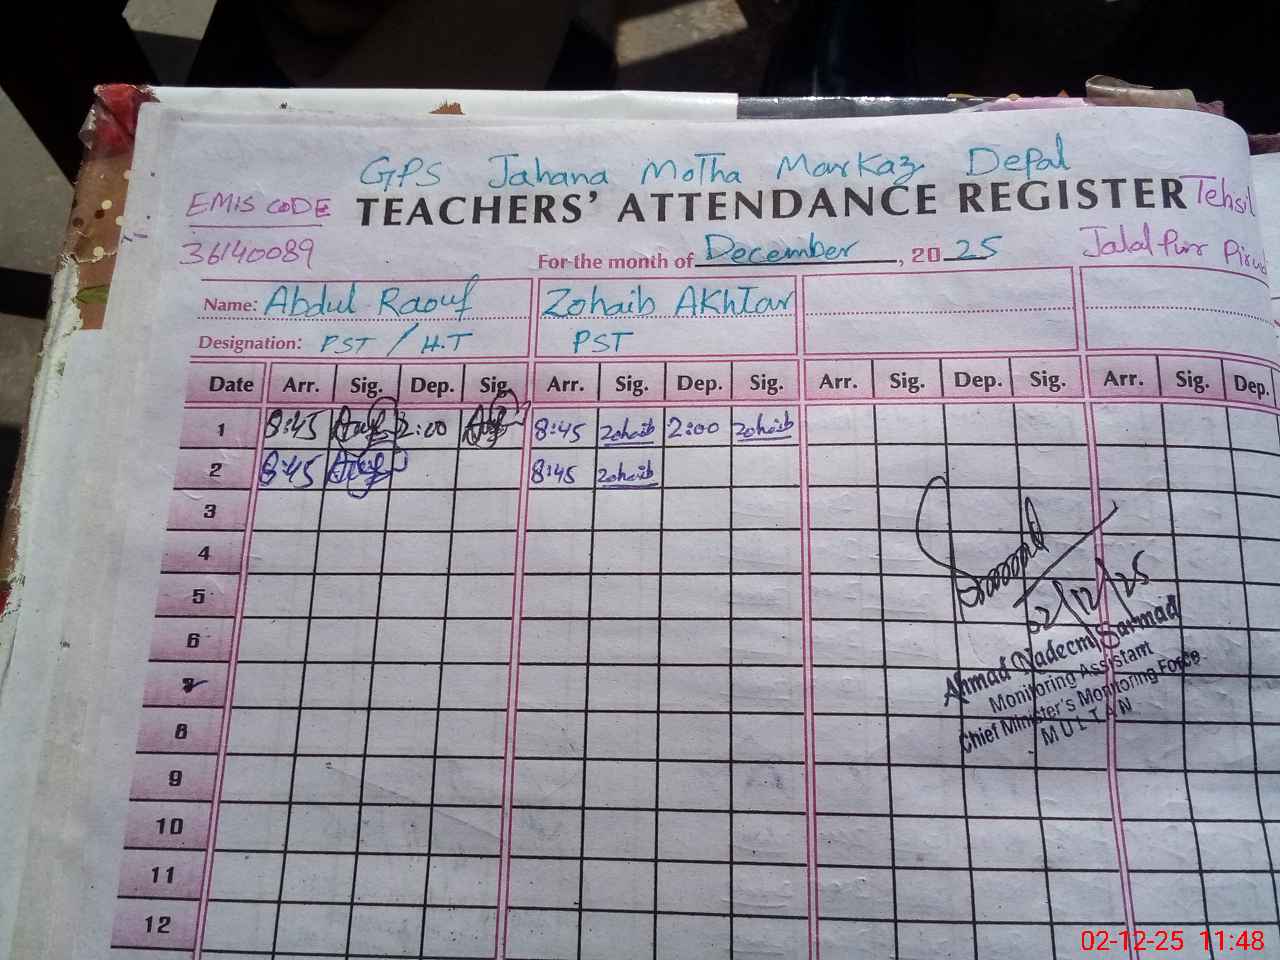 GPS Jahana Motha Markaz Depal
EMIS CODE TEACHERS' ATTENDANCE REGISTER Tehsil
36140089 For the month of December, 2025 Jalal Purr
Name: Abdul Raouf Zohaib Akhtar
Designation: PST / H.T PST
Date Arr. Sig. Dep. Sig. Arr. Sig. Dep. Sig. Arr. Sig. Dep. Sig. Arr. Sig. Dep.
1 8:45 2:00 8:45 Zohaib 2:00 Zohaib
2 8:45 8:45 Zohaib
3
4
5
6
7
8
9
10
11
12
02/12/25
Ahmad Nadeem Sarmad
Monitoring Assistant
Chief Minister's Monitoring Force
MULTAN
02-12-25 11:48